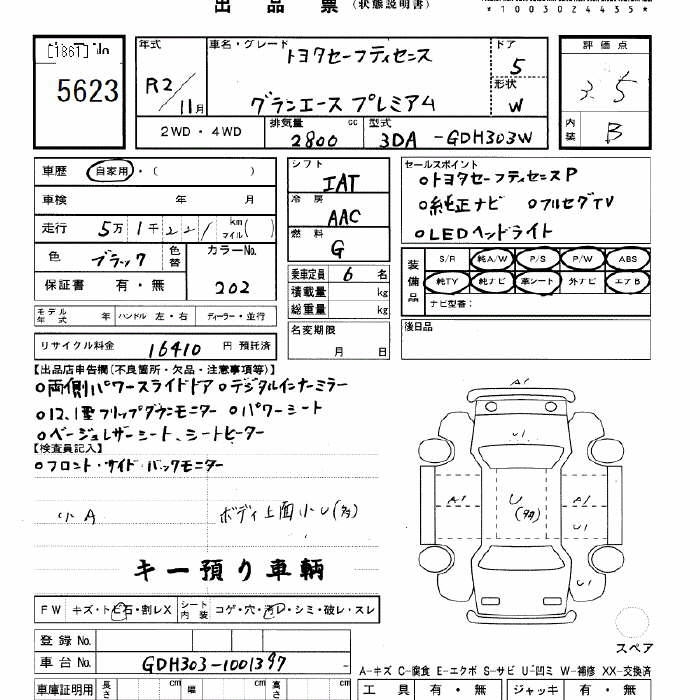 出品票(状態説明書)
*1003024435*
5623
年式 R2/11月
車名・グレード トヨタセーフティセンス
グランエース プレミアム
ドア 5
形状 W
評価点 3.5
内装 B
2WD・4WD
排気量 2800 cc
型式 3DA -GDH303W
車歴 自家用・( )
車検 年 月
走行 5万1千221km マイル( )
色 ブラック 色替
カラーNo. 202
保証書 有・無
シフト IAT
冷房 AAC
燃料 G
乗車定員 6名
積載量 kg
総重量 kg
名変期限 月 日
セールスポイント
○トヨタセーフティセンスP
○純正ナビ ○フルセグTV
○LEDヘッドライト
装備品
S/R 純A/W P/S P/W ABS
純TV 純ナビ 革シート 外ナビ エアB
ナビ型番:
後日品
モデル年式 年 ハンドル 左・右 ディーラー・並行
リサイクル料金 16410 円 預託済
【出品店申告欄(不良箇所・欠品・注意事項等)】
○両側パワースライドドア ○デジタルインナーミラー
○12.1型フリップダウンモニター ○パワーシート
○ベージュレザーシート、シートヒーター
【検査員記入】
○フロント・サイド・バックモニター
小A ボディ上面小U(多)
キー預り車輌
A1
U1
A1
U(多)
A1
U1
U1
スペア
FW キズ・トビ石・割レX
シート内装 コゲ・穴・汚レ・シミ・破レ・スレ
登録No.
車台No. GDH303-1001397 -
A-キズ C-腐食 E-エクボ S-サビ U-凹ミ W-補修 XX-交換済
車庫証明用 長さ cm 幅 cm 高さ cm
工具 有・無 ジャッキ 有・無